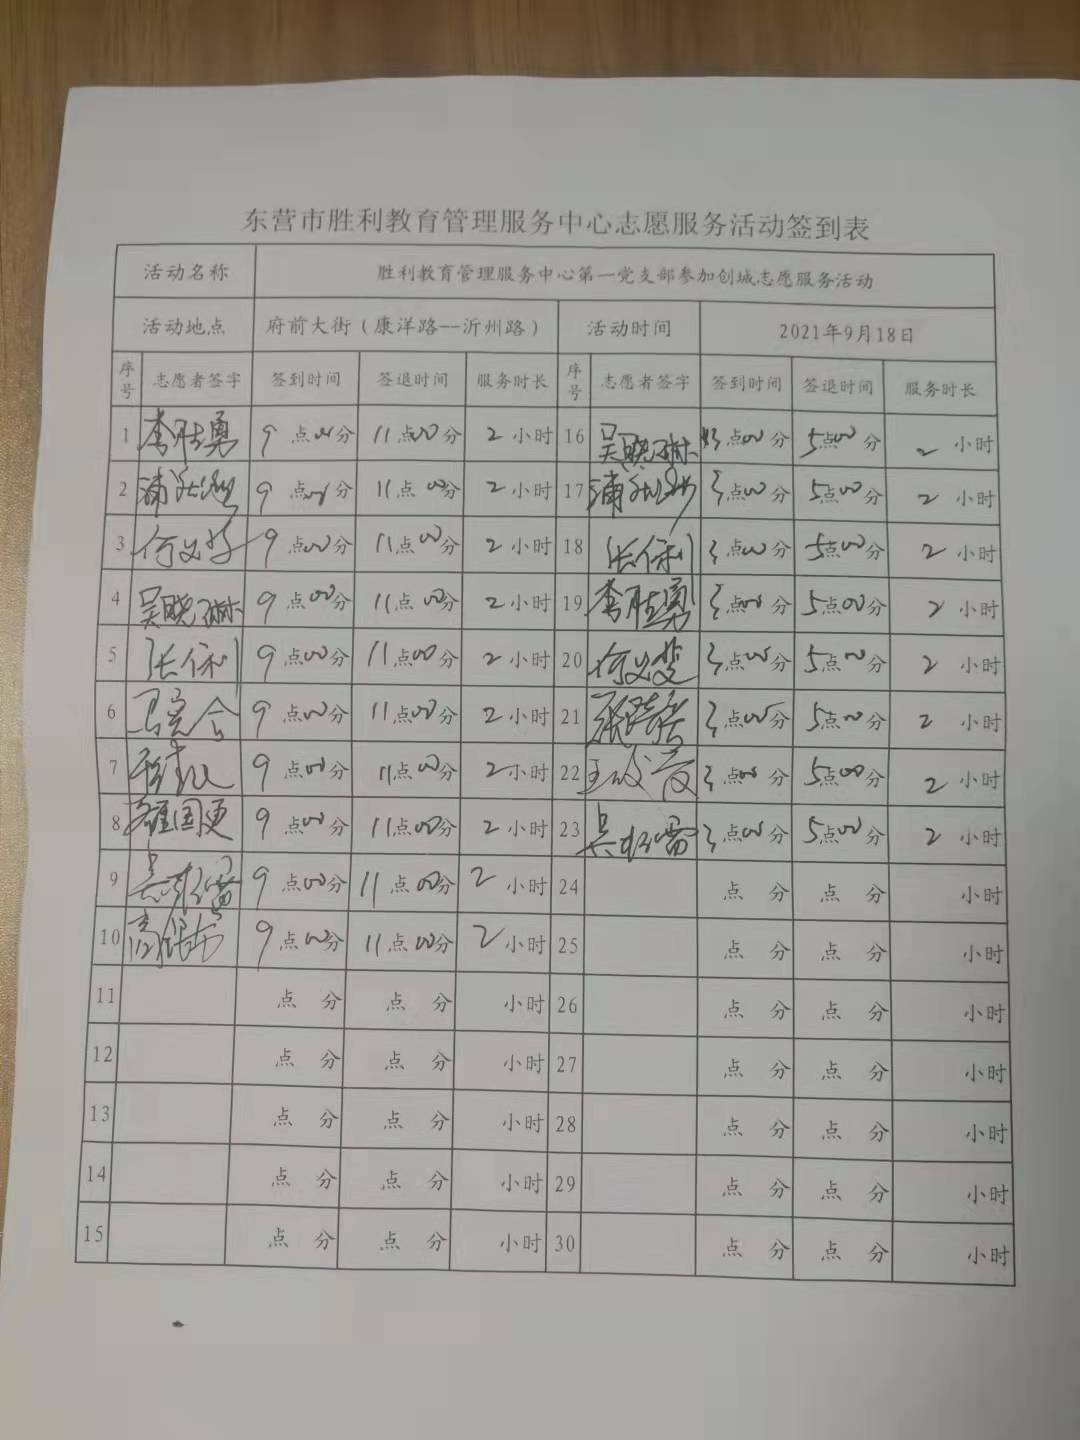 东营市胜利教育管理服务中心志愿服务活动签到表
活动名称 胜利教育管理服务中心第一党支部参加创城志愿服务活动
活动地点 府前大街（康洋路--沂州路） 活动时间 2021年9月18日
序号 志愿者签字 签到时间 签退时间 服务时长 序号 志愿者签字 签到时间 签退时间 服务时长
1 李胜勇 9点00分 11点00分 2小时 16 吴晓琳 3点00分 5点00分 2小时
2 9点00分 11点00分 2小时 17 3点00分 5点00分 2小时
3 9点00分 11点00分 2小时 18 张保利 3点00分 5点00分 2小时
4 吴晓琳 9点00分 11点00分 2小时 19 李胜勇 3点00分 5点00分 2小时
5 张保利 9点00分 11点00分 2小时 20 3点00分 5点00分 2小时
6 9点00分 11点00分 2小时 21 3点00分 5点00分 2小时
7 9点00分 11点00分 2小时 22 3点00分 5点00分 2小时
8 9点00分 11点00分 2小时 23 3点00分 5点00分 2小时
9 9点00分 11点00分 2小时 24 点 分 点 分 小时
10 9点00分 11点00分 2小时 25 点 分 点 分 小时
11 点 分 点 分 小时 26 点 分 点 分 小时
12 点 分 点 分 小时 27 点 分 点 分 小时
13 点 分 点 分 小时 28 点 分 点 分 小时
14 点 分 点 分 小时 29 点 分 点 分 小时
15 点 分 点 分 小时 30 点 分 点 分 小时